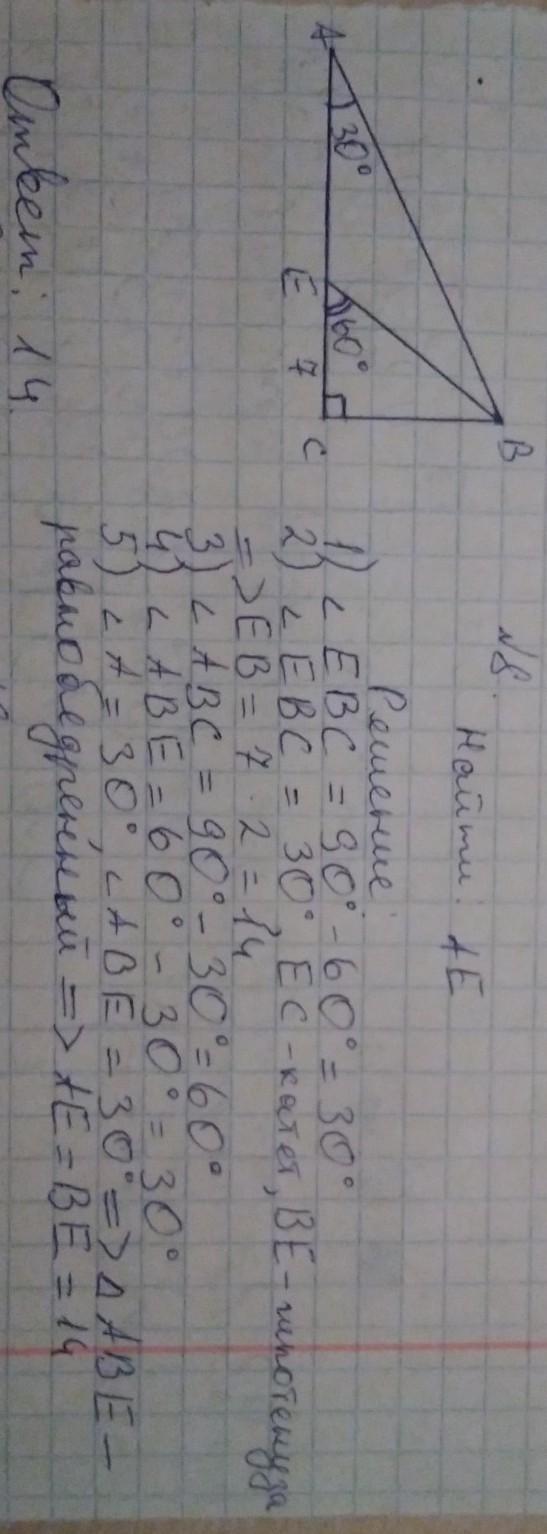 №8.
Найти: AE
A
30°
E
60°
7
C
B
Решение:
1) ∠EBC = 90° - 60° = 30°
2) ∠EBC = 30°, EC - катет, BE - гипотенуза
=> EB = 7 · 2 = 14
3) ∠ABC = 90° - 30° = 60°
4) ∠ABE = 60° - 30° = 30°
5) ∠A = 30°, ∠ABE = 30° => Δ ABE -
равнобедренный => AE = BE = 14
Ответ: 14.